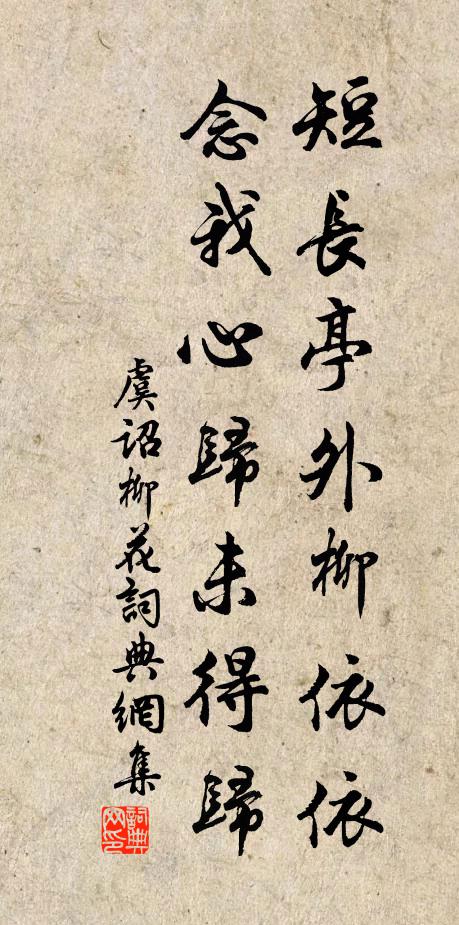 短長亭外柳依依
念我心歸未得歸
虞詔柳花詞典網集
詞典
网印